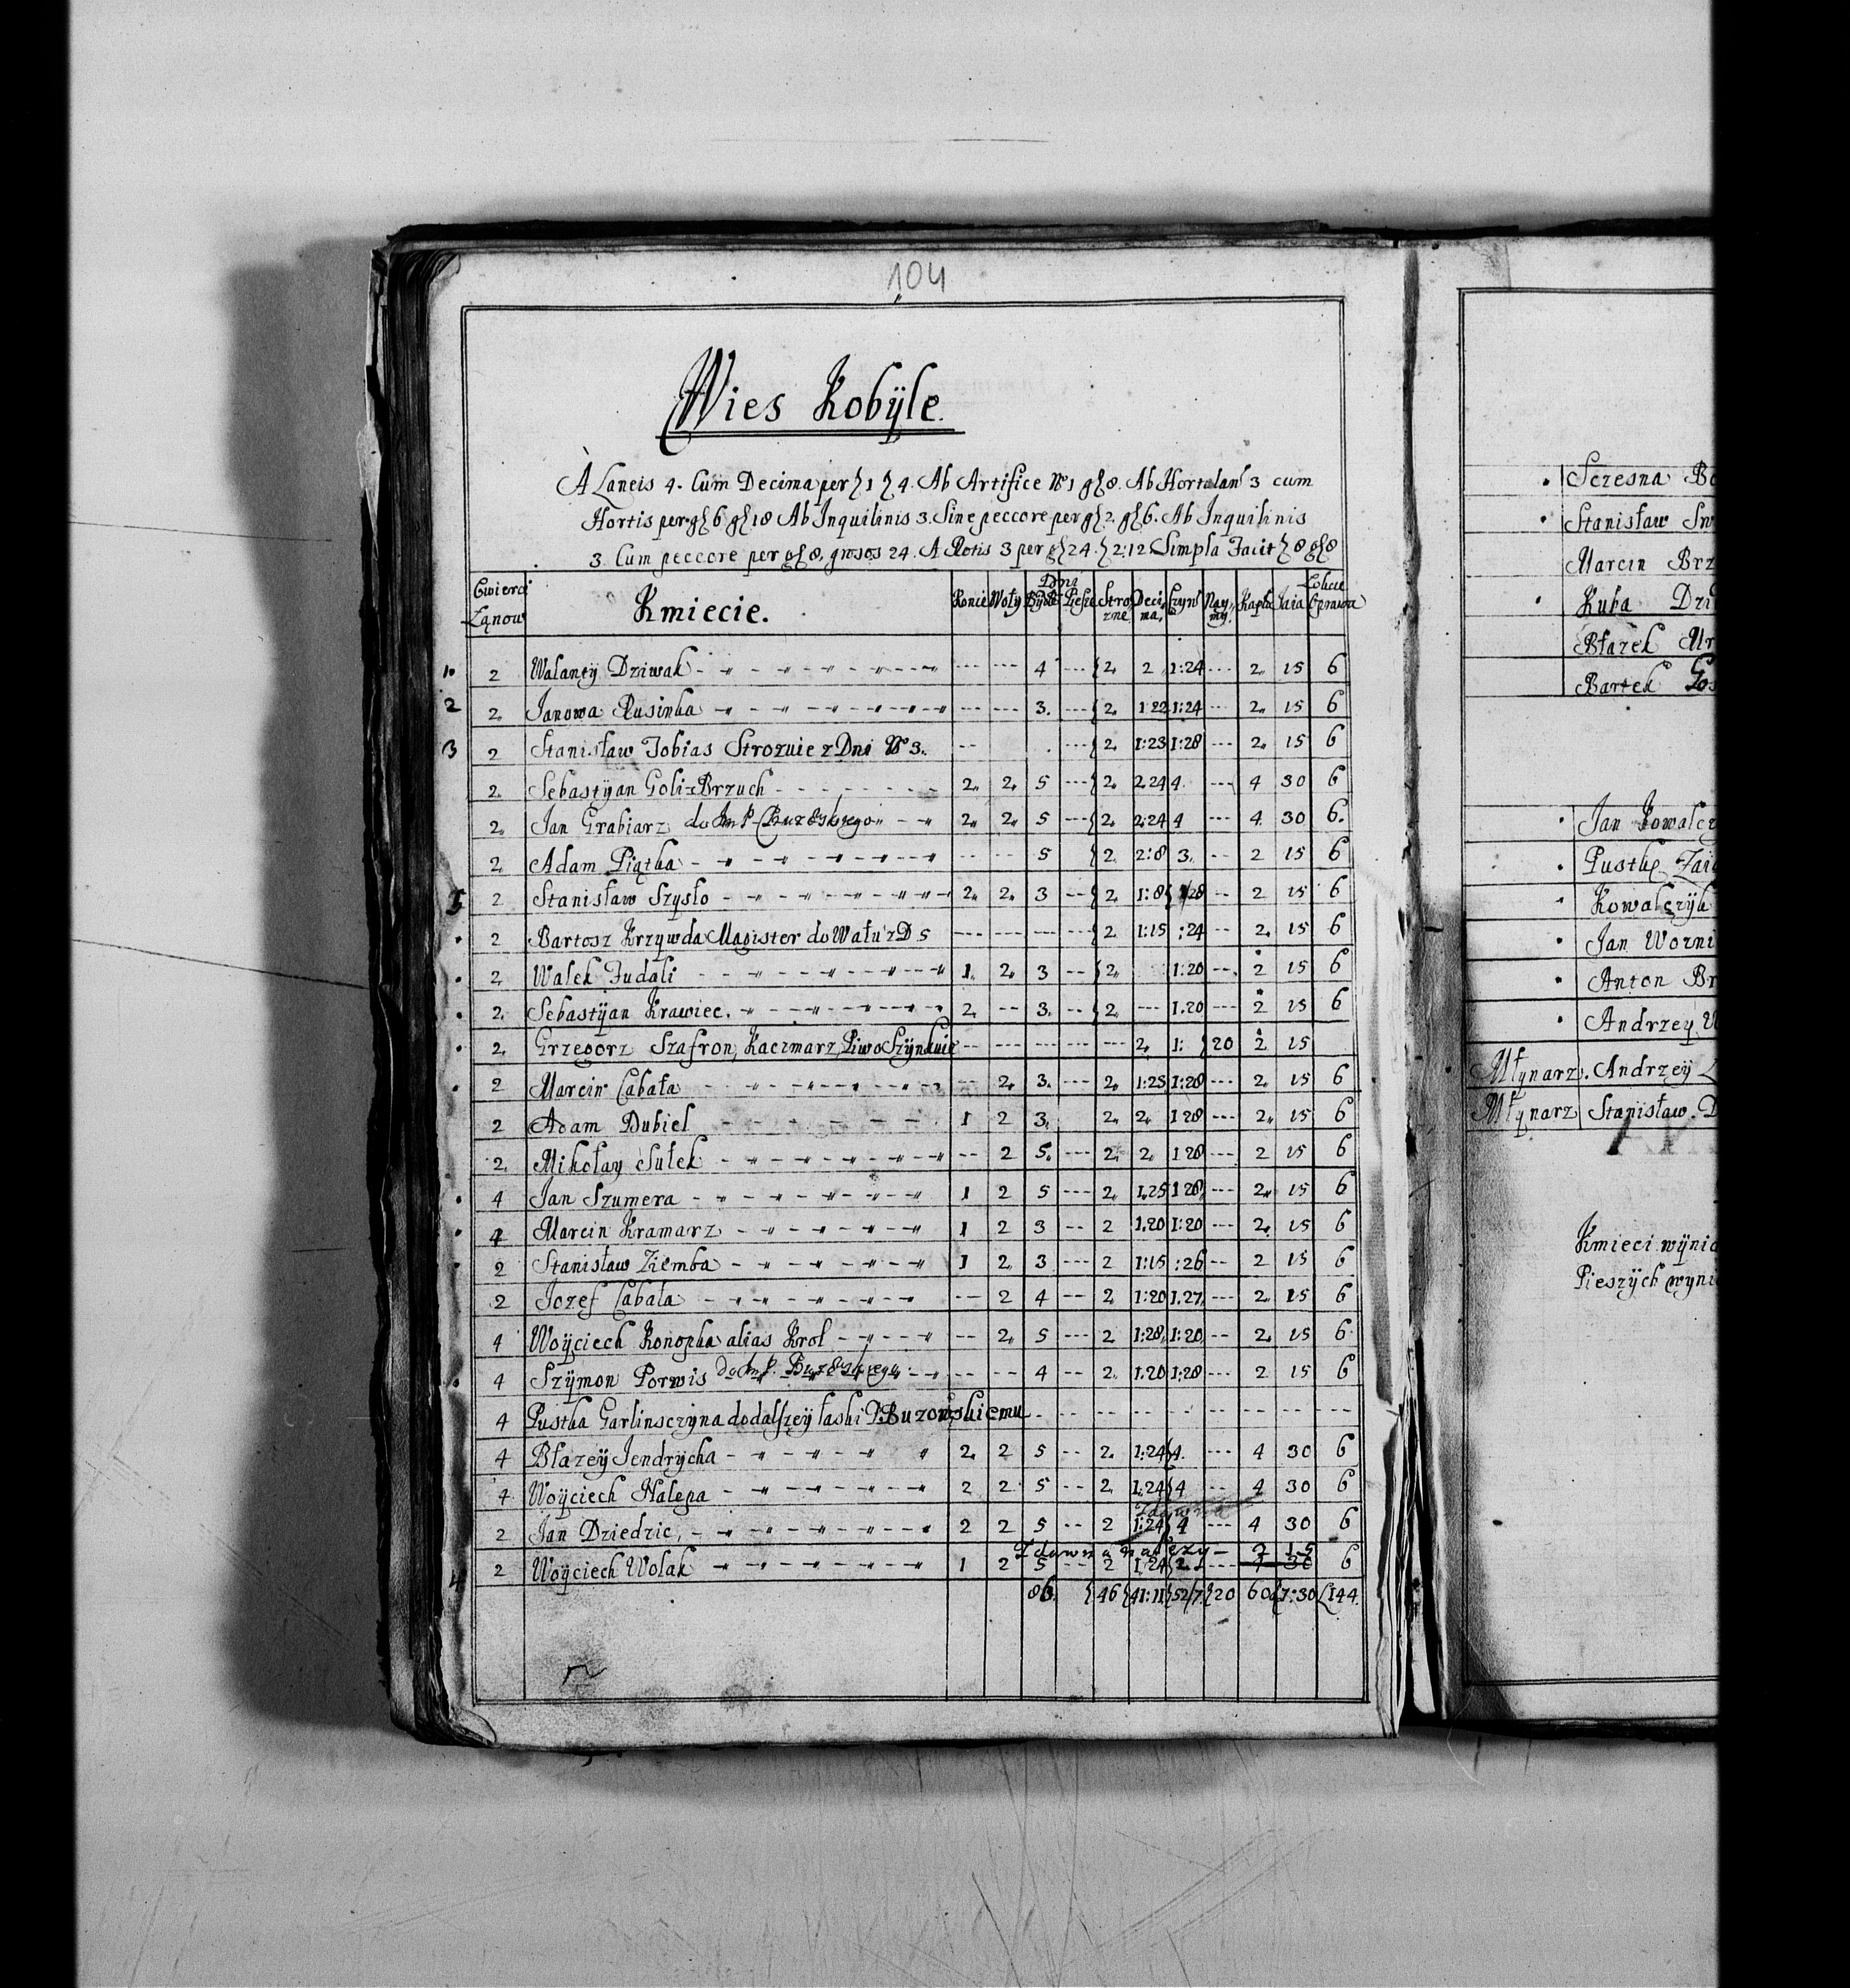 104
Wies Kobÿle
À Laneis 4. Cum Decima per ʒ 1 ʒ 4. Ab Artifice No 1 gʒ 8. Ab Hortulan 3 cum
Hortis per gʒ 6 gʒ 18 Ab Inquilinis 3. Sine peccore per gʒ 2. gʒ 6. Ab Inquilinis
3. Cum peccore per gʒ 8. grosos 24. A Rotis 3 per gʒ 24. ʒ 2:12. Simpla Facit ʒ 8 gʒ 8
Cwierci Łąnow Kmiecie. Konie Woły Dni Bydł Piesze Stro zne Deci ma, Czyns Nay my. Kapł Jaia Łokcie Oprawa
1. 2 Walanty Dziwak 4 2. 2 1:24 2. 15 6
2 2. Janowa Rusinka 3. 2. 1:22 1:24 2. 15 6
3 2 Stanisław Tobias Strozuie z Dni No 3. 2. 1:23 1:28 2. 15 6
2. Sebastÿan Goli=Brzuch 2. 2. 5 2. 2.24 4. 4 30 6
2. Jan Grabiarz do Im P 2. 2. 5 2. 2:24 4 4. 30 6.
2. Adam Piątka 5 2. 2:8 3. 2 15 6
2 Stanisław Szysło 2. 2. 3 2. 1:8 2 15 6
2 Bartosz Krzywda Magister do Wału z D 5 2 1:15 :24 2. 15 6
2. Walek Fudali 1. 2. 3 2. 1:20 2 15 6
2. Sebastÿan Krawiec. 2. 3. 2. 1.20 2 15 6
2. Grzegorz Szafron, Kaczmarz, Piwo Szÿnkuie 2. 1: 20 2 15
2 Marcin Cabała 2. 3. 2. 1:25 1:28 2. 15 6
2 Adam Dubiel 1 2 3. 2. 2. 1 28 2. 15 6
2. Mikołay Sułek 2 5. 2. 2. 1 28 2 15 6
4 Jan Szumera 1 2 5 2. 1.25 1 28 2. 15 6
4 Marcin Kramarz 1 2 3 2 1.20 1:20 2. 15 6
2 Stanisław Ziemba 1 2. 3 2 1:15 :26 2 15 6
2 Jozef Cabała 2 4 2. 1:20 1.27. 2. 15 6
4 Woÿciech Konopka alias Krol 2. 5 2 1:28 1:20 2. 15 6
4 Szÿmon Porwis 4 2. 1.20 1:28 2 15 6
4 Pustka Garlinsczyna do dalszeÿ łaski P. Buzowskiemu
4 Błazeÿ Jendrycha 2. 2 5 2. 1:24 4. 4 30 6
4 Woÿciech Nalepa 2 2 5 2. 1.24 4 4 30 6
2 Jan Dziedzic, 2 2 5 2 1:24 4 4 30 6
Zdawna należy 2 15
2 Woÿciech Wolak 1 2 5 2 1.24 2. 30 6
86. 46 41:11 52/7 20 60 7:30 144.
Sczesna
Stanisław
Marcin
Kuba
Błazek
Bartek
Jan
Pustka
Kowalczÿk
Jan
Anton
Andrzey
Młynarz. Andrzeÿ
Młynarz Stanisław.
Kmieci
Pieszÿch